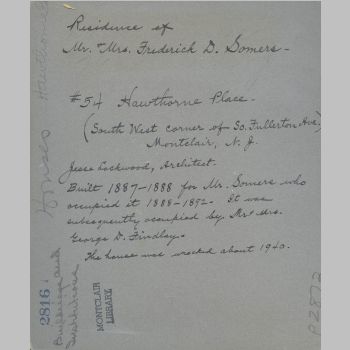 Residence of
Mr. & Mrs. Frederick D. Somers -
#54 Hawthorne Place -
(South West corner of So. Fullerton Ave)
Montclair, N. J.
Jesse Lockwood, Architect.
Built 1887-1888 for Mr. Somers who
occupied it 1888-1892. It was
subsequently occupied by Mr & Mrs.
George D. Findlay.
The house was wrecked about 1940.
Houses Hawthorne
2816
Buildings and
MONTCLAIR
LIBRARY
P2872